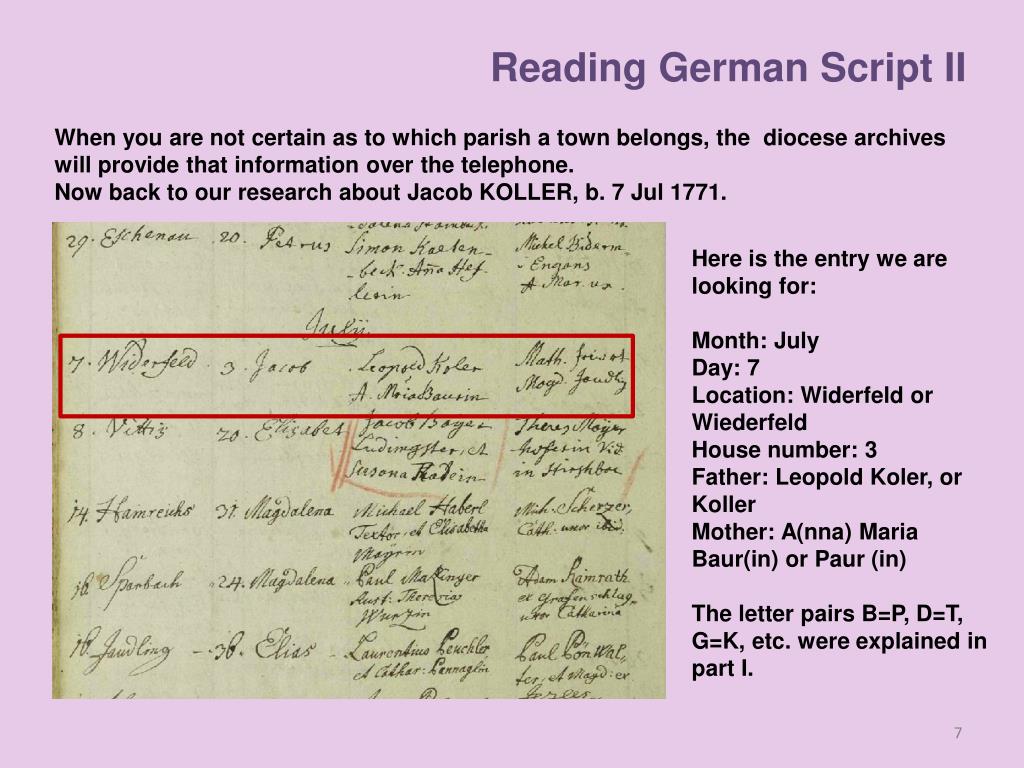 Reading German Script II
When you are not certain as to which parish a town belongs, the diocese archives
will provide that information over the telephone.
Now back to our research about Jacob KOLLER, b. 7 Jul 1771.
29. Eschenau 20. Petrus Simon Kasten- Michel
-beck. Aña Hef-
lerin
July.
7. Widerfeld 3. Jacob Leopold Koler Math.
A. Mria Baurin Magd.
8. Vittis 20. Elisabet Jacob Bayer Theres Mayer
Ludingster, et
Susana in Hirshba
14. Hamreichs 31. Magdalena Michael Haberl Mich. Scherzer,
Textor, et Elisabetha Cath. uxor ibid.
Mayrin
16. Sparbach 24. Magdalena Paul Adam Kamrath
Aust. Theresia
Wurzin uxor Catharina
18. Jaudling 36. Elias Laurentius Peuchler Paul
et Cathar. ter, et Magd. ex
Here is the entry we are
looking for:
Month: July
Day: 7
Location: Widerfeld or
Wiederfeld
House number: 3
Father: Leopold Koler, or
Koller
Mother: A(nna) Maria
Baur(in) or Paur (in)
The letter pairs B=P, D=T,
G=K, etc. were explained in
part I.
7